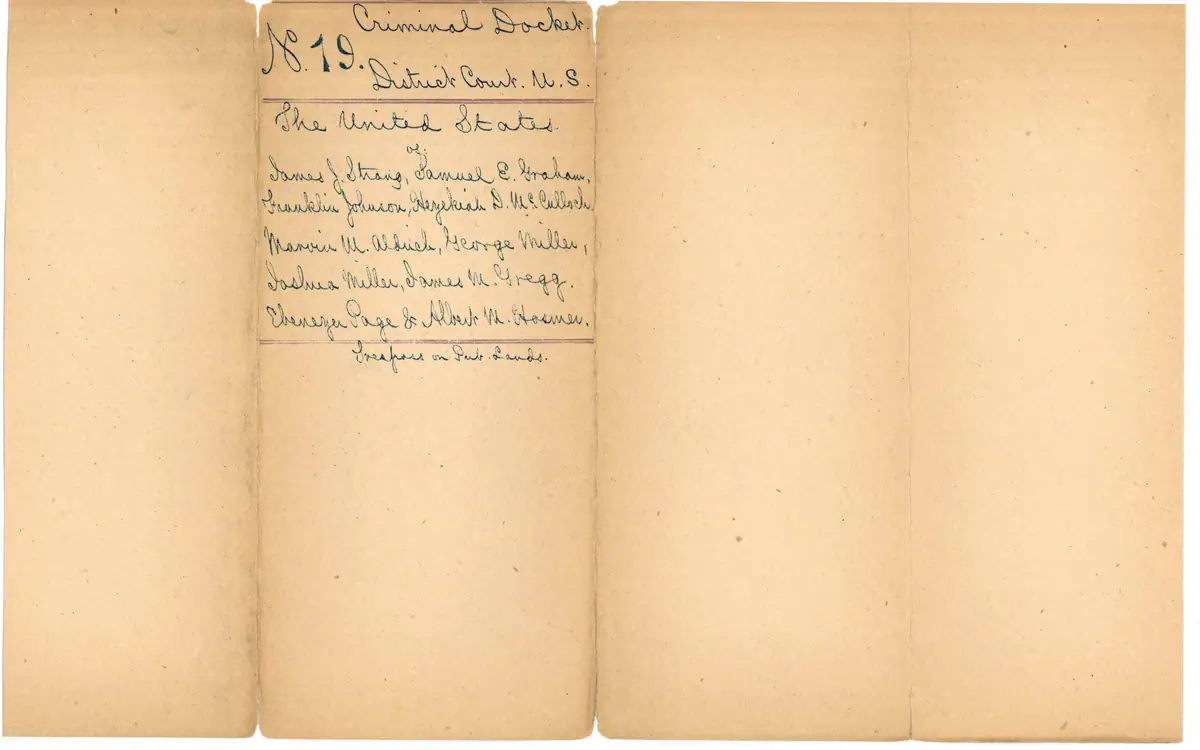 Criminal Docket.
No. 19.
District Court. U. S.
The United States.
vs.
James J. Strang, Samuel E. Graham,
Franklin Johnson, Hezekiah D. McCulloch
Marvin M. Aldrich, George Miller,
Joshua Miller, James M. Gregg.
Ebenezer Page & Albert M. Hosmer.
Trespass on Pub. Lands.